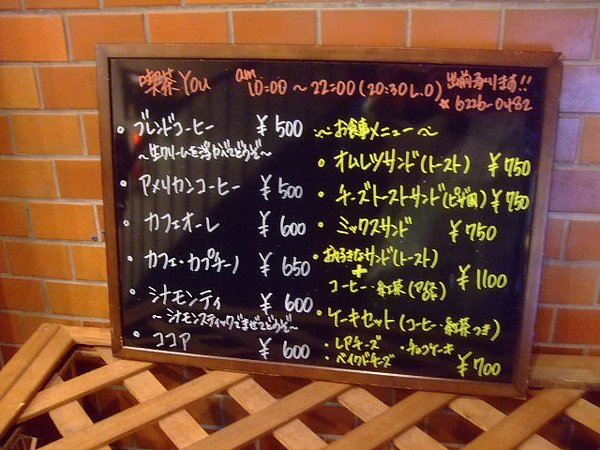 喫茶You am 10:00～22:00(20:30 L.O) 出前承ります!!
6226-0482
・ブレンドコーヒー ¥500
～生クリームを浮かべてどうぞ～
・アメリカンコーヒー ¥500
・カフェオーレ ¥600
・カフェ・カプチーノ ¥650
・シナモンティ ¥600
～シナモンスティックでまぜてどうぞ～
・ココア ¥600
～お食事メニュー～
・オムレツサンド(トースト) ¥750
・チーズトーストサンド(ピザ風) ¥750
・ミックスサンド ¥750
・お好きなサンド(トースト)
+
コーヒー・紅茶 ¥1100
・ケーキセット(コーヒー・紅茶つき)
・レアチーズ ・チョコケーキ
・ベイクドチーズ ¥700